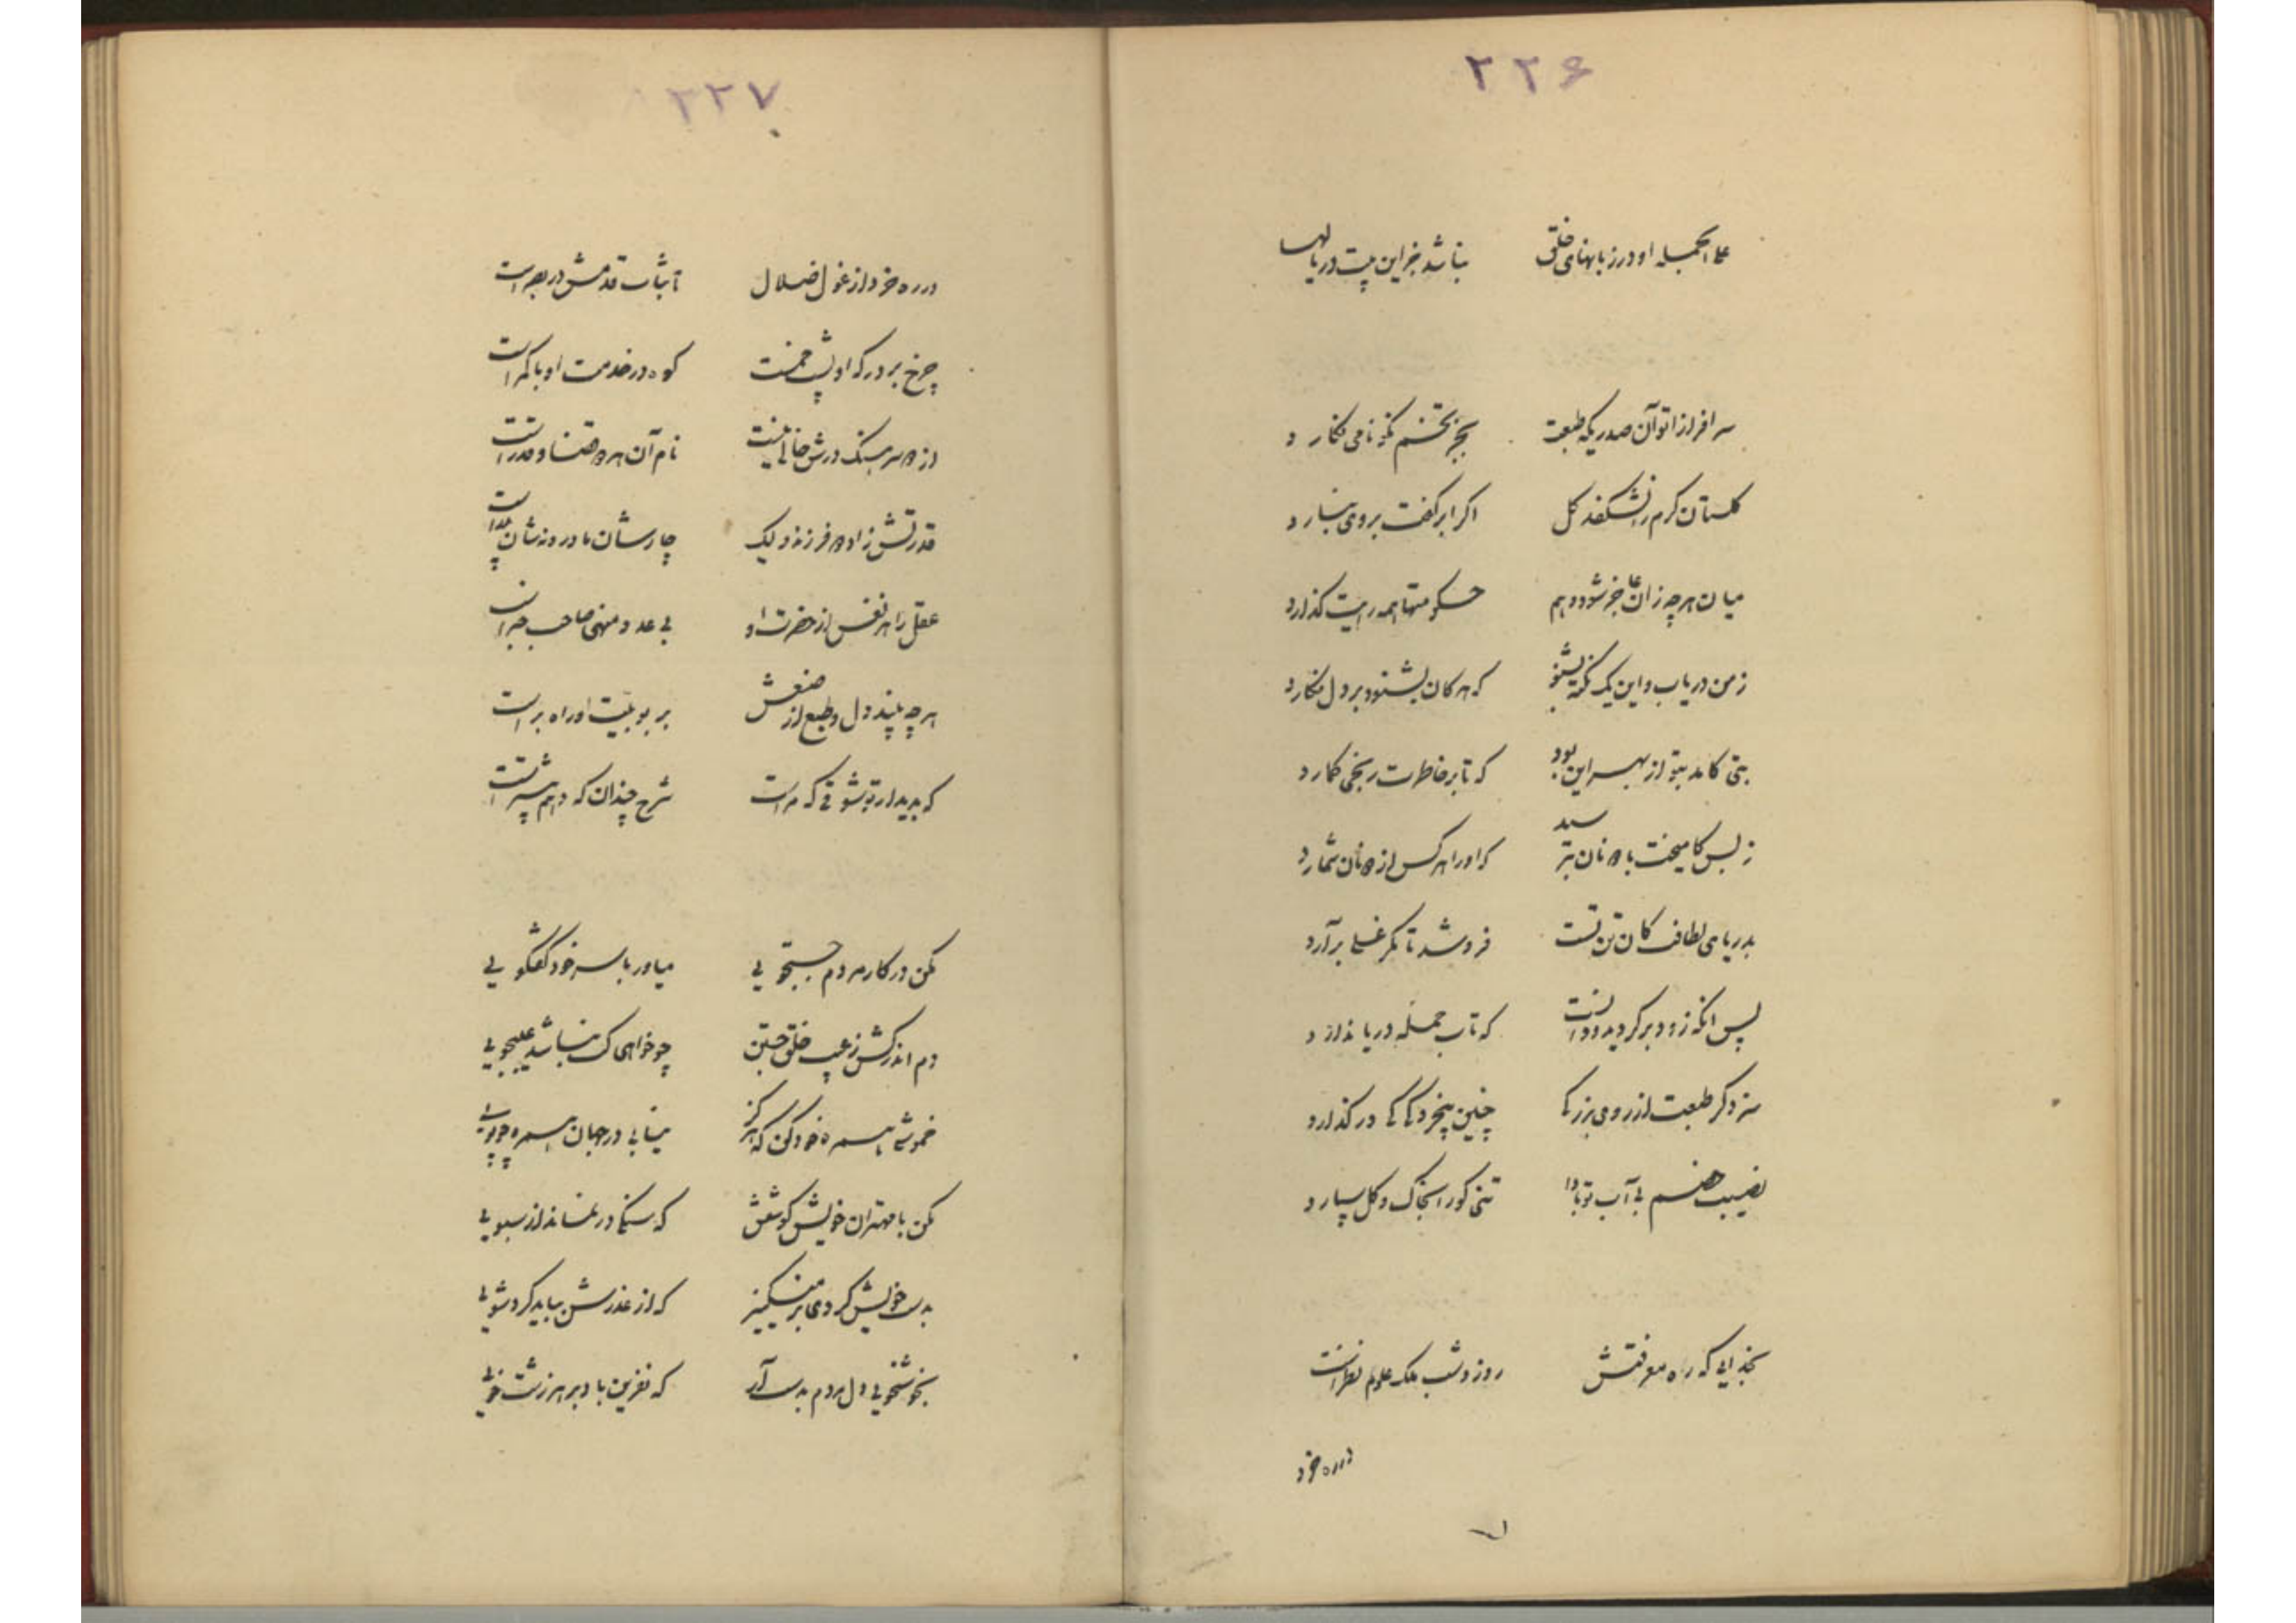 ۲۲۶
علی الجمله او در زبانهای خلق نباشد جز این بیت در بابها
سرافرازا تو آن صدری که طبعت بجز تخم نکو نامی نکارد
گلستان کرم را نشکفد گل اگر ابر کفت بر وی نبارد
میان هر چه زان عاجز شود وهم حکومتها همه رایت گذارد
ز من دریاب و این یک نکته بشنو که هر کان بشنود بر دل نگارد
بتی کامد بتو از بهر این بود که تا بر خاطرت رنجی گمارد
ز بس کامیخت با دونان بترسید که او را هر کس از دونان شمارد
بدریای لطافت کان تن تست فرو شد تا مگر غسلی برآرد
پس آنگه زود برگردید و دانست که تاب حمله دریا ندارد
سزد گر طبعت از روی بزرگی چنین بیخردگی در گذارد
نصیب خصم بی آب تو بادا تنی کو را بخاک و گل سپارد
بخدایی که راه معرفتش روز و شب ملک علوم نظر است
در ره خرد
۲۲۷
در ره خرد از غول ضلال تا بثبات قدمش در بصر است
چرخ بر درگه او پشت خمست کوه در خدمت او با کمر است
از دو سرهنگ درش خالی نیست نام آن هر دو قضا و قدر است
قدرتش زاده دو فرزند و لیک چارشان مادر و نه شان پدر است
عقل را هر نفس از حضرت او بی عدد منهی صاحب خبر است
هر چه بیند دل و طبع از صنعش بر ربوبیت او راهبر است
که بدیدار تو شوقی که مراست شرح چندان که دهم بیشتر است
مکن در کار مردم جستجویی میاور با سر خود گفتگویی
دم اندر کش ز عیب خلق جستن چو خواهی کت نباشد عیبجویی
خموشی را همره خود کن که هرگز نیابی در جهان همره چو اویی
مکن با مهتران خویش کوشش که سنگی درنماند از سبویی
بدست خویش گردی بر مینگیز که از عذرش بباید کرد شویی
بخوشخویی دل مردم بدست آر که نفرین باد بر هر زشت خویی